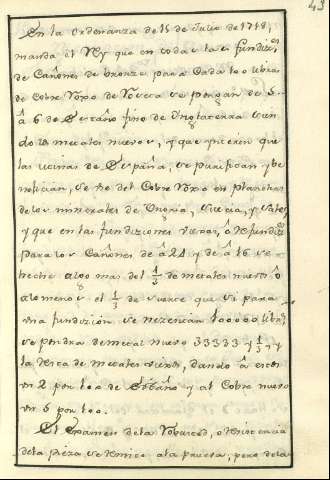 43
En la ordenanza de 15 de Julio de 1718,
manda el Rey que en todas las fundiz.s
de Cañones de bronze para Cada 100 libras
de Cobre Roxo de se pongan de 5
â 6 de Estaño fino de Inglaterra sien-
do los metales nuevos, y que que
las de España, se purifican y be-
nefician, se ha del Cobre Roxo en planchas
de los minerales de Ungria, Suecia, y
y que en las fundiziones
para los Cañones de â 24 y de â 16 se
heche algo mas del 1/3 de metales nuevos ô
alomenos el 1/3 de suerte que si para
una fundizión se mezclan 100000 libras
se pondra demetal nuevo 33333 y 1/3, y
la de metales viejos, dando â estos
un 2 por 100 de Estaño y al Cobre nuevo
un 5 por 100.
El Examen dela o Resistencia
dela pieza se remite ala prueva, pero dela